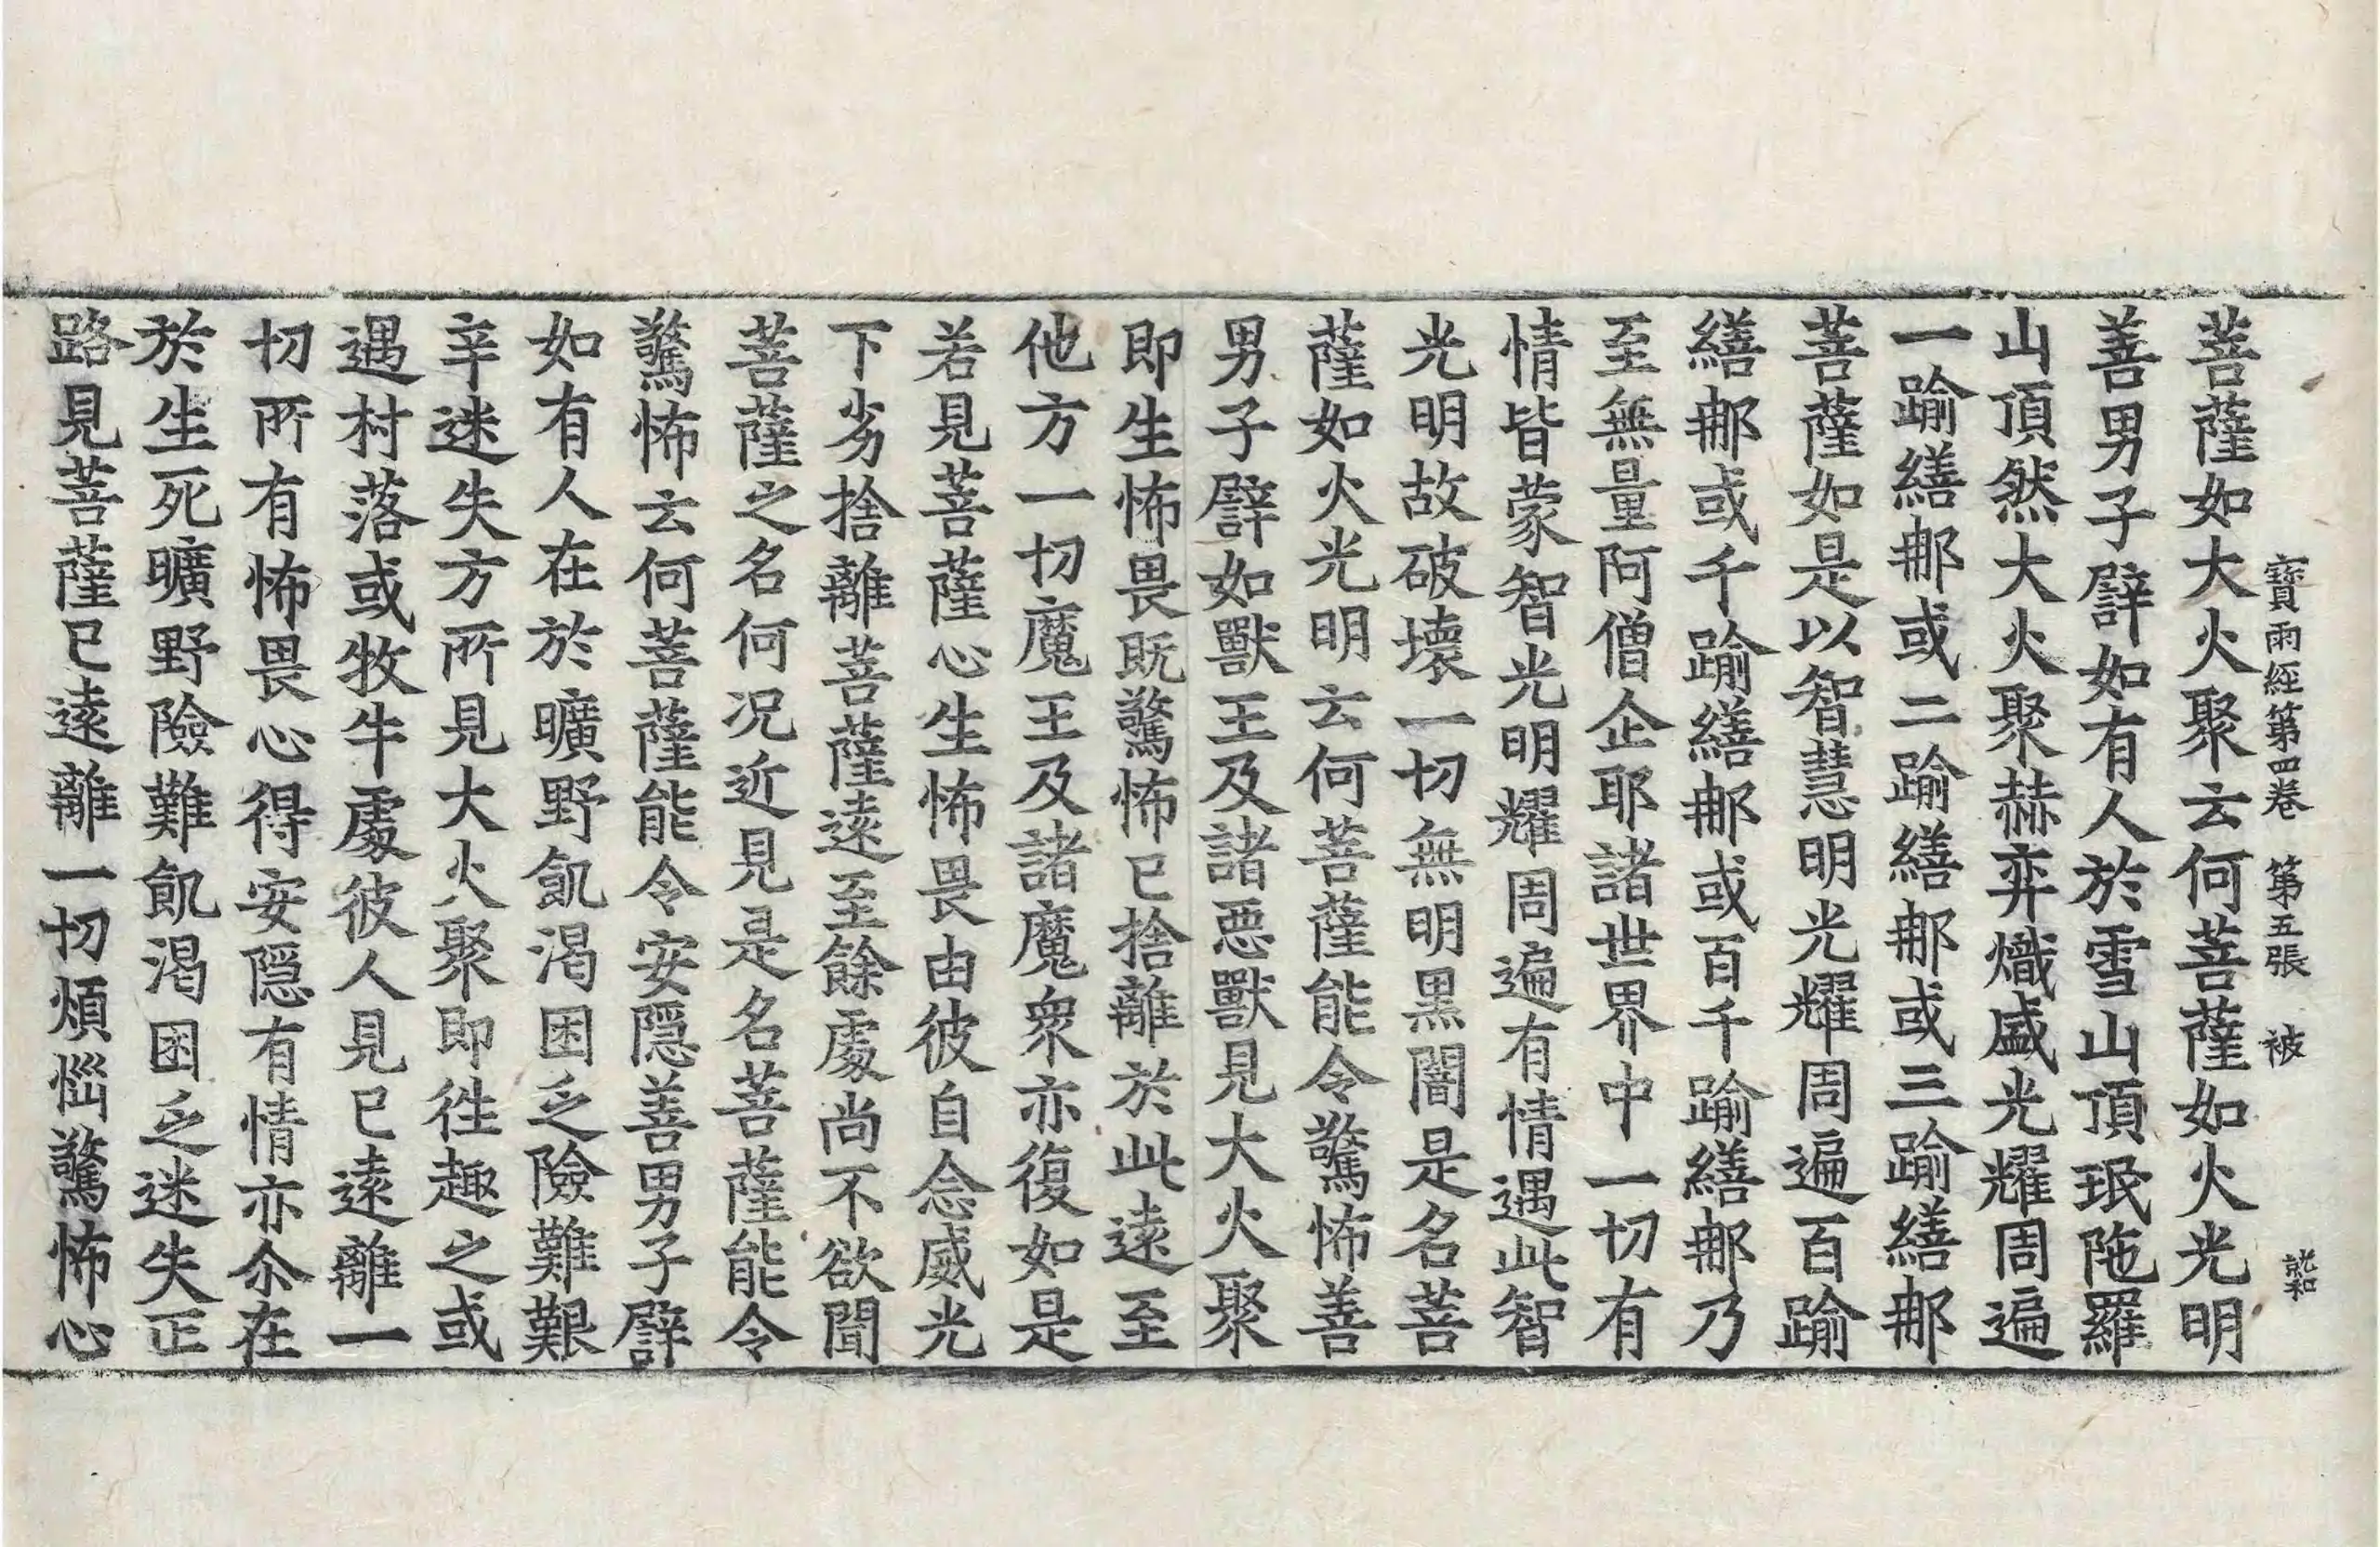 寶雨經第四卷　第五張　被
菩薩如大火聚云何菩薩如火光明
善男子譬如有人於雪山頂珉陁羅
山頂然大火聚赫弈熾盛光耀周遍
一踰繕那或二踰繕那或三踰繕那
菩薩如是以智慧明光耀周遍百踰
繕那或千踰繕那或百千踰繕那乃
至無量阿僧企耶諸世界中一切有
情皆蒙智光明耀周遍有情遇此智
光明故破壞一切無明黑闇是名菩
薩如火光明云何菩薩能令驚怖善
男子譬如獸王及諸惡獸見大火聚
即生怖畏既驚怖已捨離於此遠至
他方一切魔王及諸魔衆亦復如是
若見菩薩心生怖畏由彼自念威光
下劣捨離菩薩遠至餘處尚不欲聞
菩薩之名何況近見是名菩薩能令
驚怖云何菩薩能令安隱善男子譬
如有人在於曠野飢渴困乏險難艱
辛迷失方所見大火聚即往趣之或
遇村落或牧牛處彼人見已遠離一
切所有怖畏心得安隱有情亦尒在
於生死曠野險難飢渴困乏迷失正
路見菩薩已遠離一切煩惱驚怖心